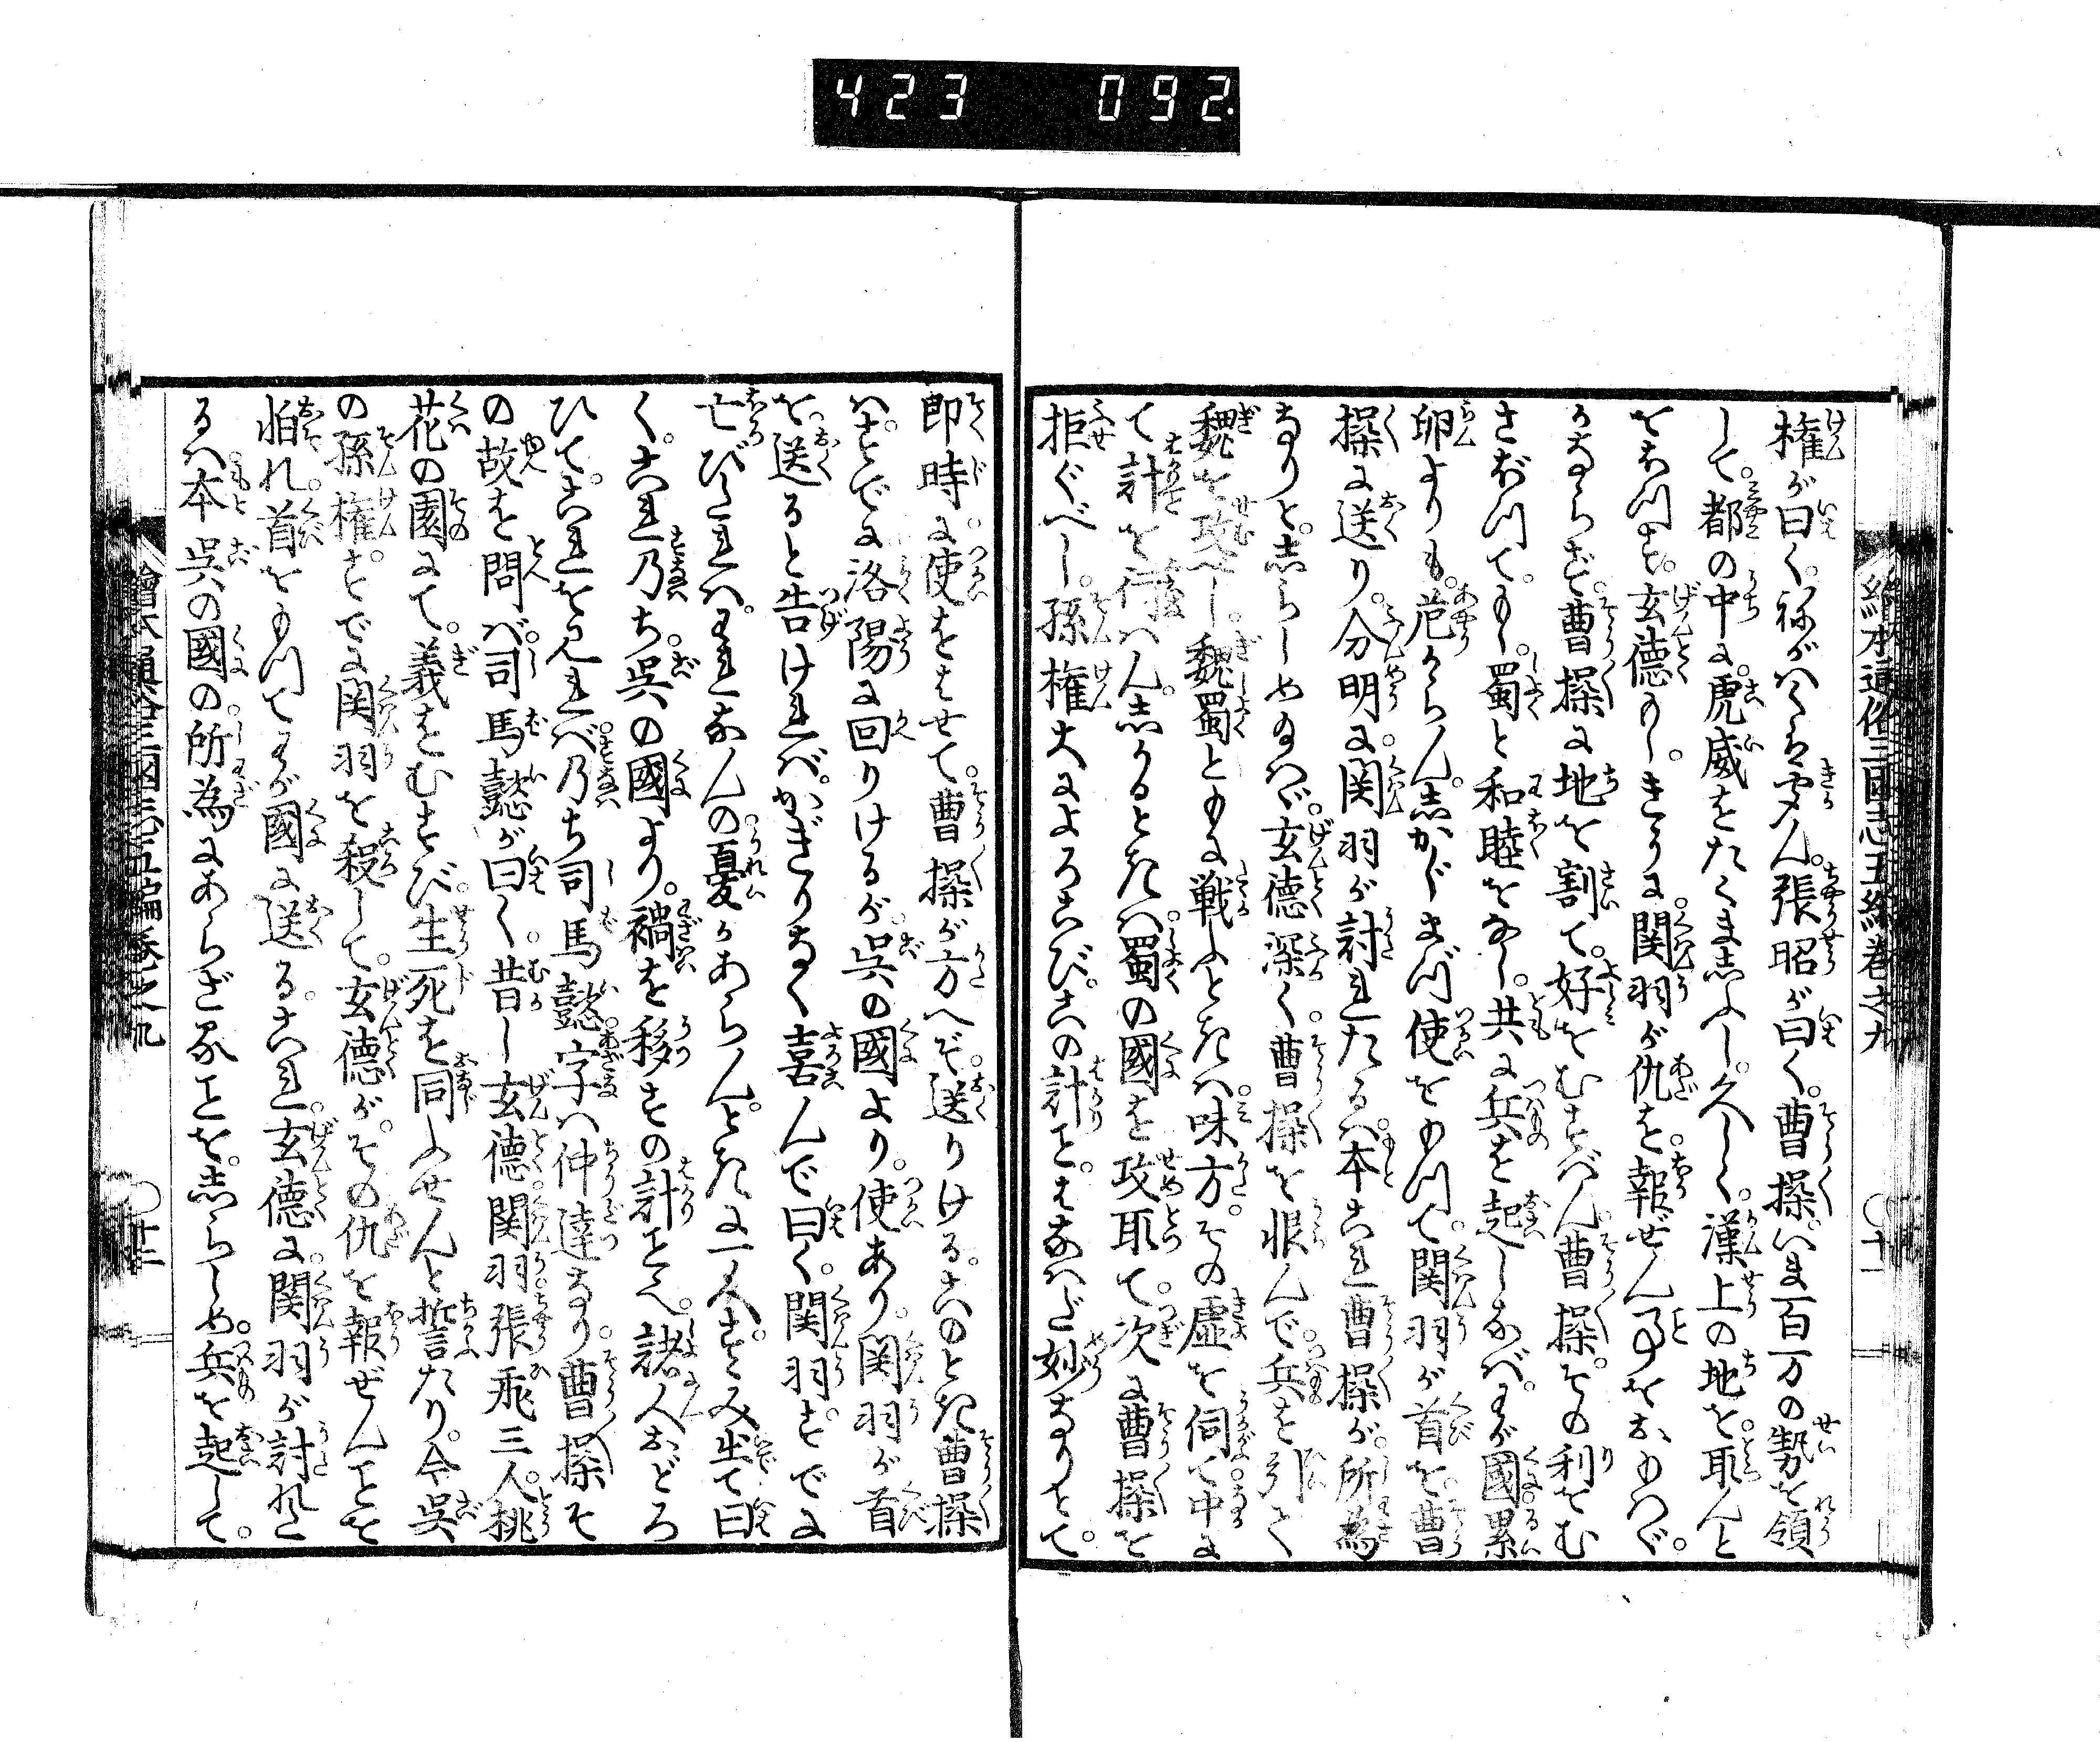 423 092
繪本通俗三國志五編巻之九 〇十一
権が曰く。袮がハくハ聞ん。張昭が曰く。曹操いま百万の勢を領
して。都の中に。虎威をたくましふし。久しく。漢上の地を。取んと
をもつす。玄徳もしきうに。関羽が仇を。報ぜん事をおもハゞ。
かならず。曹操に地を割て。好をむすべん。曹操。その利をむ
さぶつて。もし。蜀と和睦をなし。共に兵を起しなバ。わが國累
卵よりも。危からん。しかじまづ使をもつて。関羽が首を。曹
操に送り。分明に。関羽が討れたるハ。本これ曹操が。所為
なりと。しらしめなバ。玄徳深く。曹操を恨んで。兵を引て
魏を攻べし。魏蜀ともに戦ふときハ。味方。その虚を伺て。中に
て計を行ハん。しかるときハ。蜀の國を攻取て。次に曹操を
拒ぐべし。孫権大によろこび。この計こと。はなハだ妙なりとて。
即時に。使をはせて。曹操が方へぞ。送りける。このとき曹操
ハ。すでに洛陽に回りけるが。呉の國より。使あり。関羽が首
を。送ると告けれバ。かぎりなく喜んで曰く。関羽。すでに
亡びたれハ。われなんの憂かあらんと。ときに一人。すゝみ出て曰
く。これ乃ち。呉の國より。禍を移すの計こと也。諸人おどろ
ひて。これを見れバ。乃ち司馬懿。字ハ仲達なり。曹操そ
の故を問バ。司馬懿が曰く。昔し玄徳。関羽。張飛三人。桃
花の園にて。義をむすび。生死を同ふせんと誓たり。今呉
の孫権。すでに関羽を殺して。玄徳が。その仇を報ぜんことを
怕れ。首をもつてわが國に送る。これ。玄徳に。関羽が討れた
るハ。本呉の國の所為にあらざることを。しらしめ。兵を起して。
繪本通俗三國志五編巻之九 〇十二